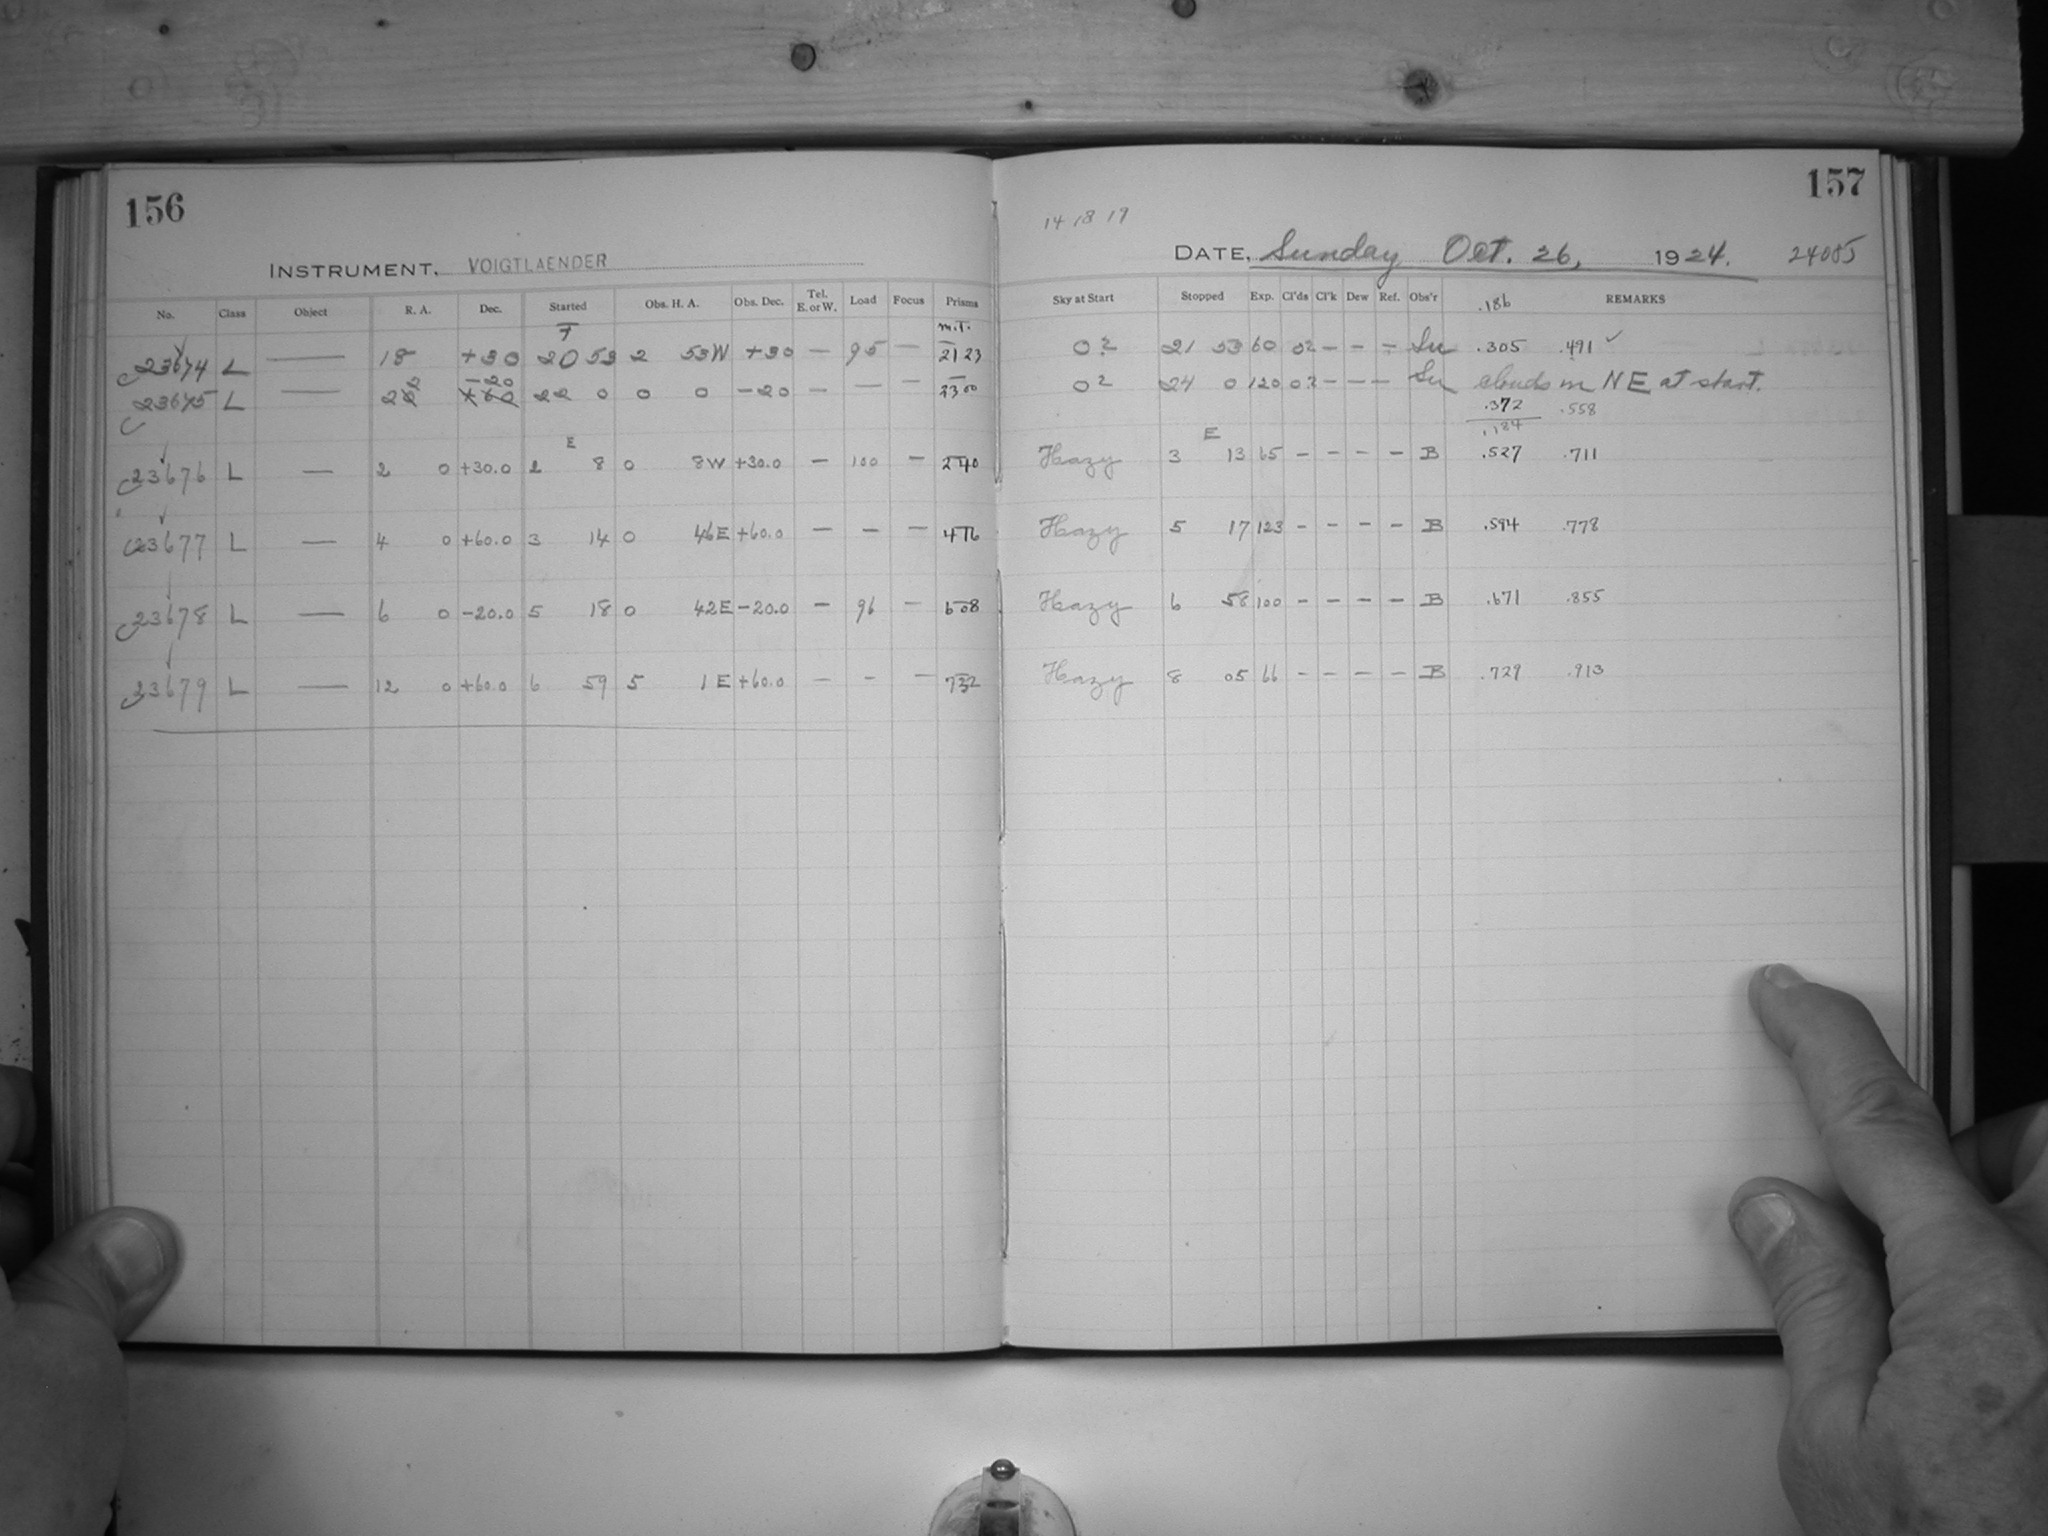 156
INSTRUMENT, VOIGTLAENDER
No. Class Object R. A. Dec. Started Obs. H. A. Obs. Dec. Tel. E. or W. Load Focus Prisms
F m.T.
23674 L — 18 +30 20 53 2 53W +30 — 95 — 21 23
2 -20
23675 L — 22 +60 22 0 0 0 -20 — — — 23 00
E
23676 L — 2 0 +30.0 2 8 0 8W +30.0 — 100 — 2 40
23677 L — 4 0 +60.0 3 14 0 46E +60.0 — — — 4 16
23678 L — 6 0 -20.0 5 18 0 42E -20.0 — 96 — 6 08
23679 L — 12 0 +60.0 6 59 5 1E +60.0 — — — 7 32
157
14 18 19
DATE, Sunday Oct. 26, 1924. 24085
Sky at Start Stopped Exp. Cl'ds Cl'k Dew Ref. Obs'r REMARKS
.186
0? 21 53 60 0? — — — Su .305 .491 ✓
0? 24 0 120 0? — — — Su clouds in NE at start.
.372 .558
.184
E
Hazy 3 13 65 — — — — B .527 .711
Hazy 5 17 123 — — — — B .594 .778
Hazy 6 58 100 — — — — B .671 .855
Hazy 8 05 66 — — — — B .729 .913